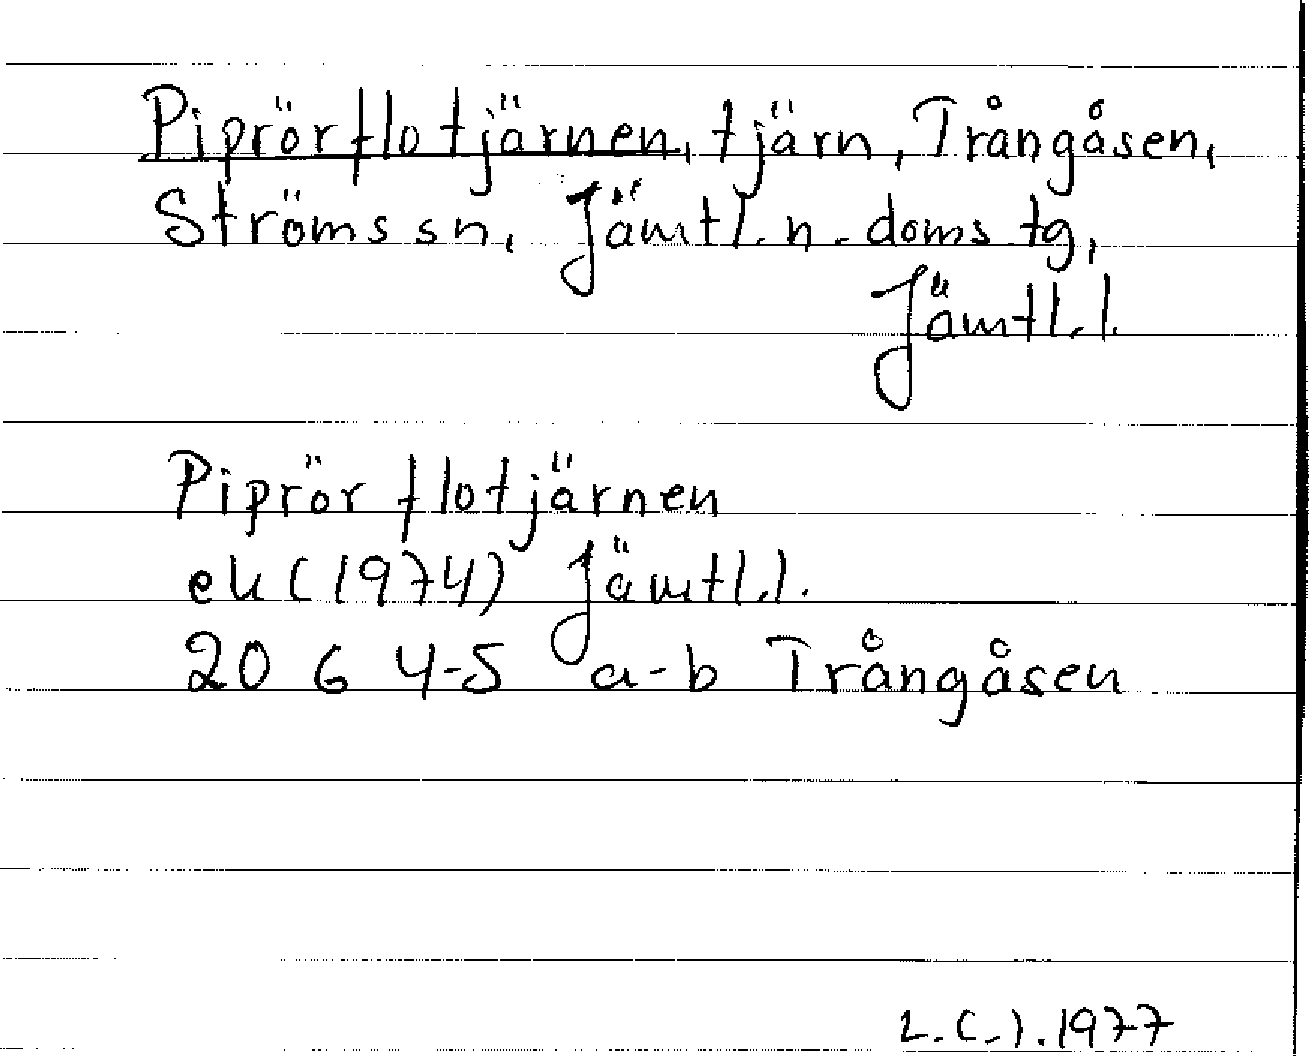 Piprörflotjärnen, tjärn, Trångåsen,
Ströms sn, Jämtl. n. doms tg,
Jämtl. l.
Piprörflotjärnen
ek (1974) Jämtl. l.
20 G 4-5 a-b Trångåsen
1977